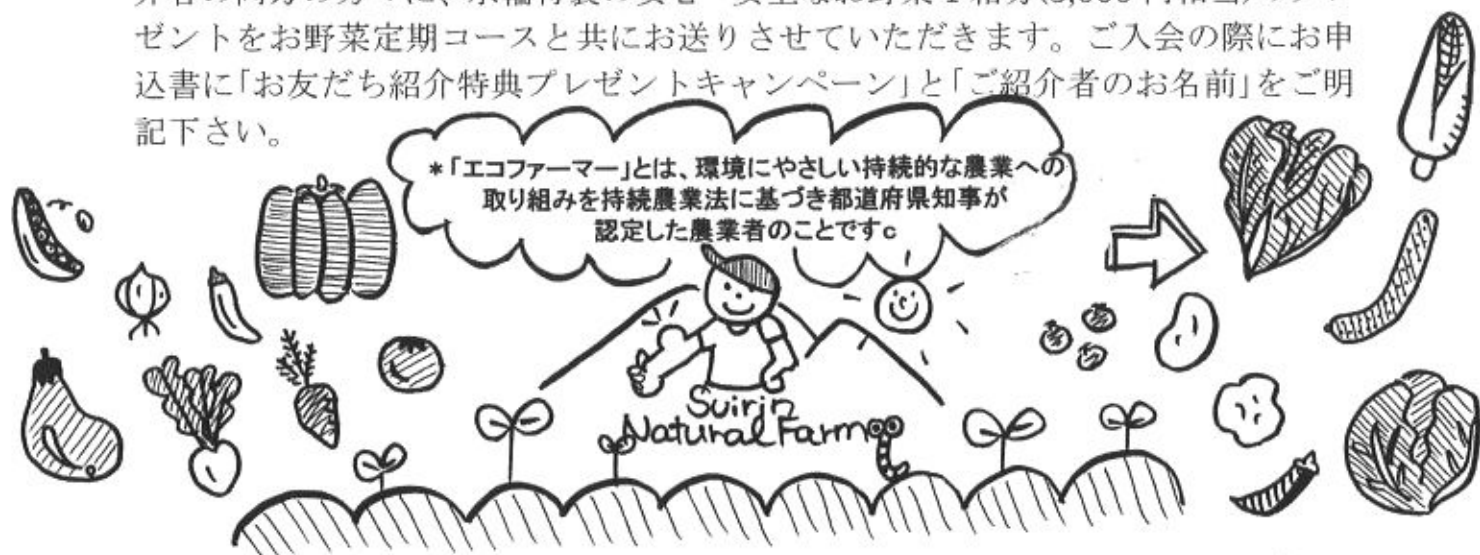 ゼントをお野菜定期コースと共にお送りさせていただきます。ご入会の際にお申
込書に「お友だち紹介特典プレゼントキャンペーン」と「ご紹介者のお名前」をご明
記下さい。
*「エコファーマー」とは、環境にやさしい持続的な農業への
取り組みを持続農業法に基づき都道府県知事が
認定した農業者のことです。
Suirin
Natural Farm